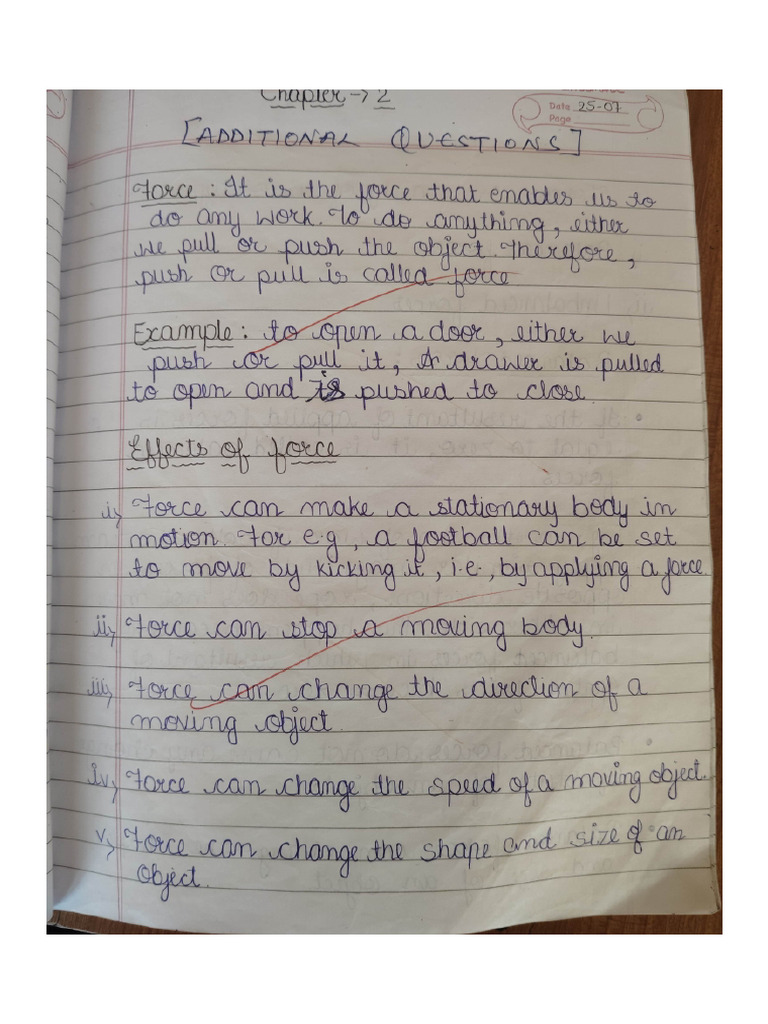 Chapter → 2
Date 25-07
Page
[ADDITIONAL QUESTIONS]
Force : It is the force that enables us to
do any work. To do anything, either
we pull or push the object. Therefore,
push or pull is called force
Example : to open a door, either we
push or pull it, A drawer is pulled
to open and is pushed to close.
Effects of force
i> Force can make a stationary body in
motion. For e.g, a football can be set
to move by kicking it, i.e., by applying a force.
ii> Force can stop a moving body.
iii> Force can change the direction of a
moving object.
iv> Force can change the speed of a moving object.
v> Force can change the shape and size of an
object.